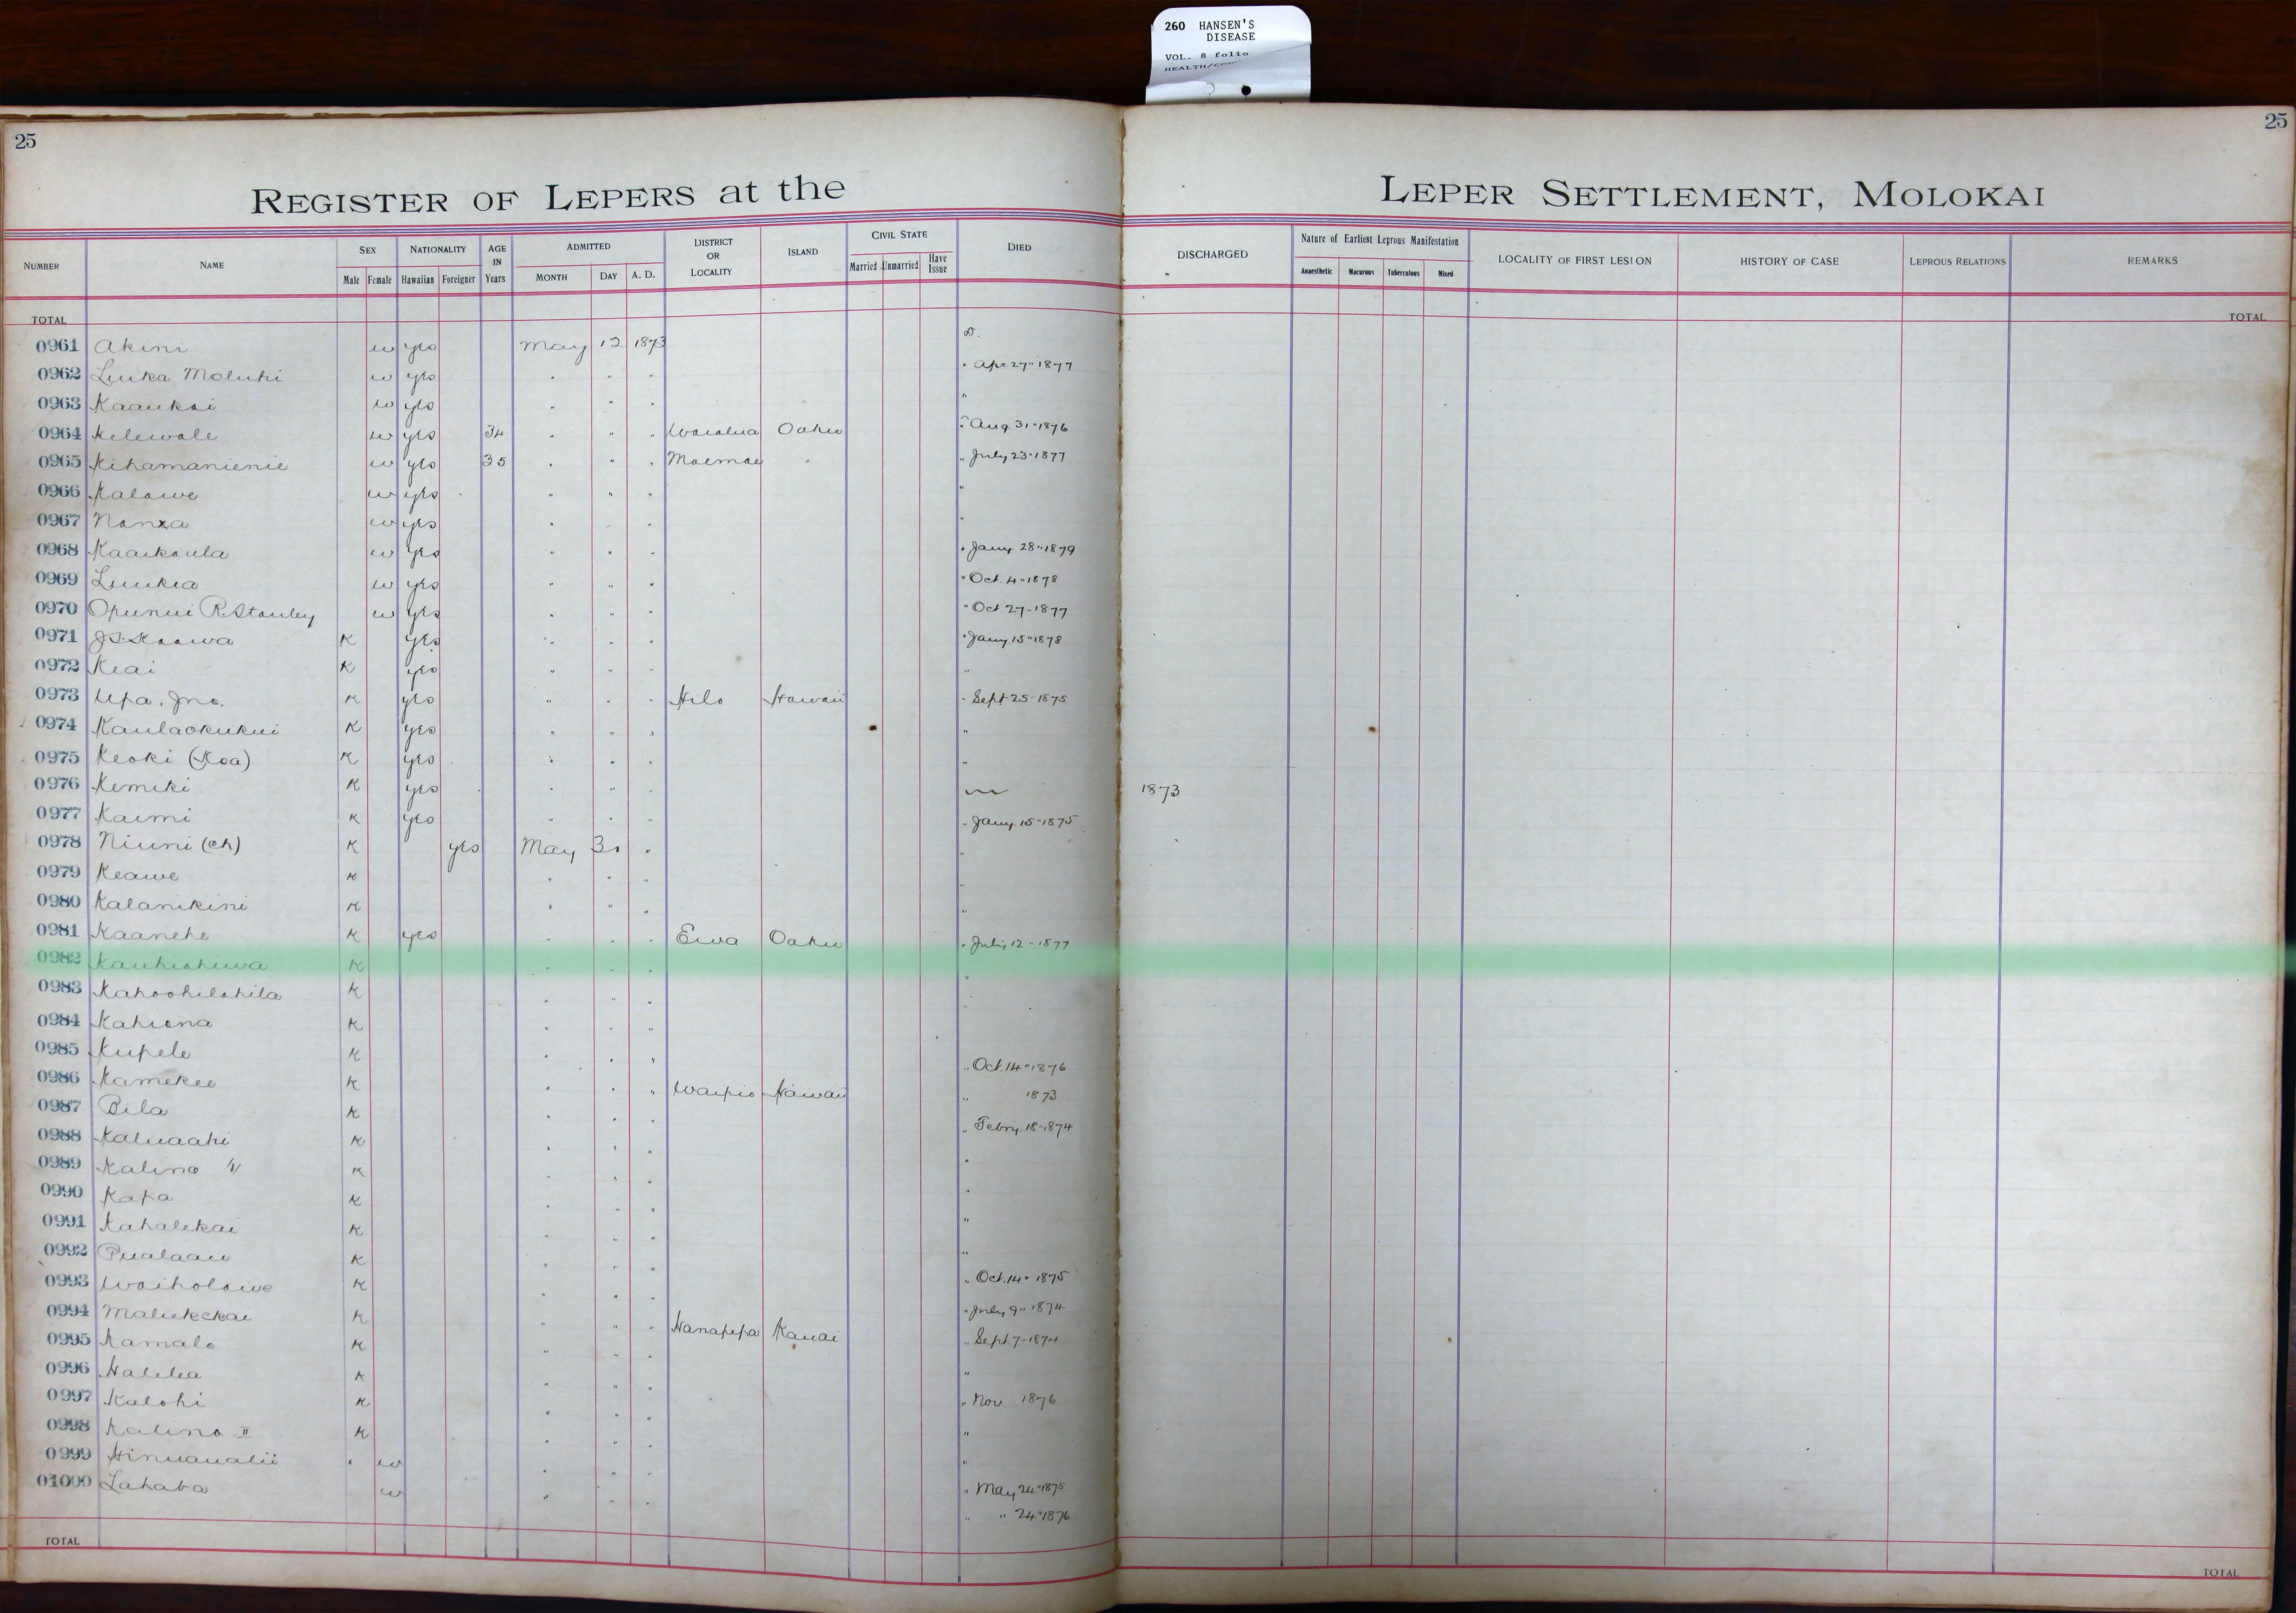 260 HANSEN'S
DISEASE
VOL. 8 folio
25
25
REGISTER OF LEPERS at the LEPER SETTLEMENT, MOLOKAI
NUMBER NAME SEX Male Female NATIONALITY Hawaiian Foreigner AGE IN Years ADMITTED MONTH DAY A. D. DISTRICT OR LOCALITY ISLAND CIVIL STATE Married Unmarried Have Issue DIED DISCHARGED Nature of Earliest Leprous Manifestation Anaesthetic Macurous Tuberculous Mixed LOCALITY OF FIRST LESION HISTORY OF CASE LEPROUS RELATIONS REMARKS
TOTAL TOTAL
0961 Akini w yes May 12 1873 D.
0962 Luika Moluhi w yes " " " " Apr. 27" 1877
0963 Kaaukai w yes " " " "
0964 Kelewale w yes 34 " " " Waialua Oahu " Aug. 31" 1876
0965 Kihamanienie w yes 35 " " " Moemoe " " July 23" 1877
0966 Kalawe w yes " " " "
0967 w yes " " " "
0968 Kaaikaula w yes " " " " Jany. 28" 1879
0969 Luukia w yes " " " " Oct. 4" 1878
0970 Opunui R. Stanley w yes " " " " Oct 27" 1877
0971 K yes " " " " Jany. 15" 1878
0972 Keai K yes " " " "
0973 Upa. Jno. K yes " " " Hilo Hawaii " Sept 25" 1875
0974 Kaulaokukui K yes " " " "
0975 Keoki (Koa) K yes " " " "
0976 Kemiki K yes " " " 1873
0977 Kaimi K yes " " " " Jany. 15" 1875
0978 Niuni (ch) K yes May 30 " "
0979 Keawe K " " " "
0980 Kalanikini K " " " "
0981 Kaanehe K yes " " " Ewa Oahu " July 12" 1877
0982 Kauhiahiwa K " " " "
0983 Kahoohilahila K " " " "
0984 Kahiona K " " "
0985 Kupele K " " " " Oct. 14" 1876
0986 Kamekeo K " " " Waipio Hawaii " 1873
0987 Bila K " " " " Febry. 18" 1874
0988 Kaluaahi K " " " "
0989 Kalino K " " " "
0990 Kapa K " " " "
0991 Kahalekai K " " " "
0992 Pualaau K " " " " Oct. 14" 1875
0993 Waiholowe K " " " " July 9" 1874
0994 Maliekekai K " " " Hanapepa Kauai " Sept. 7" 1874
0995 Kamalo K " " " "
0996 Halelea K " " " " Nov. 1876
0997 Kalohi K " " " "
0998 Kalino II K " " " "
0999 Hinuaualii w " " " " May 24" 1875
01000 Lahaba w " " " " " 24" 1876
TOTAL TOTAL